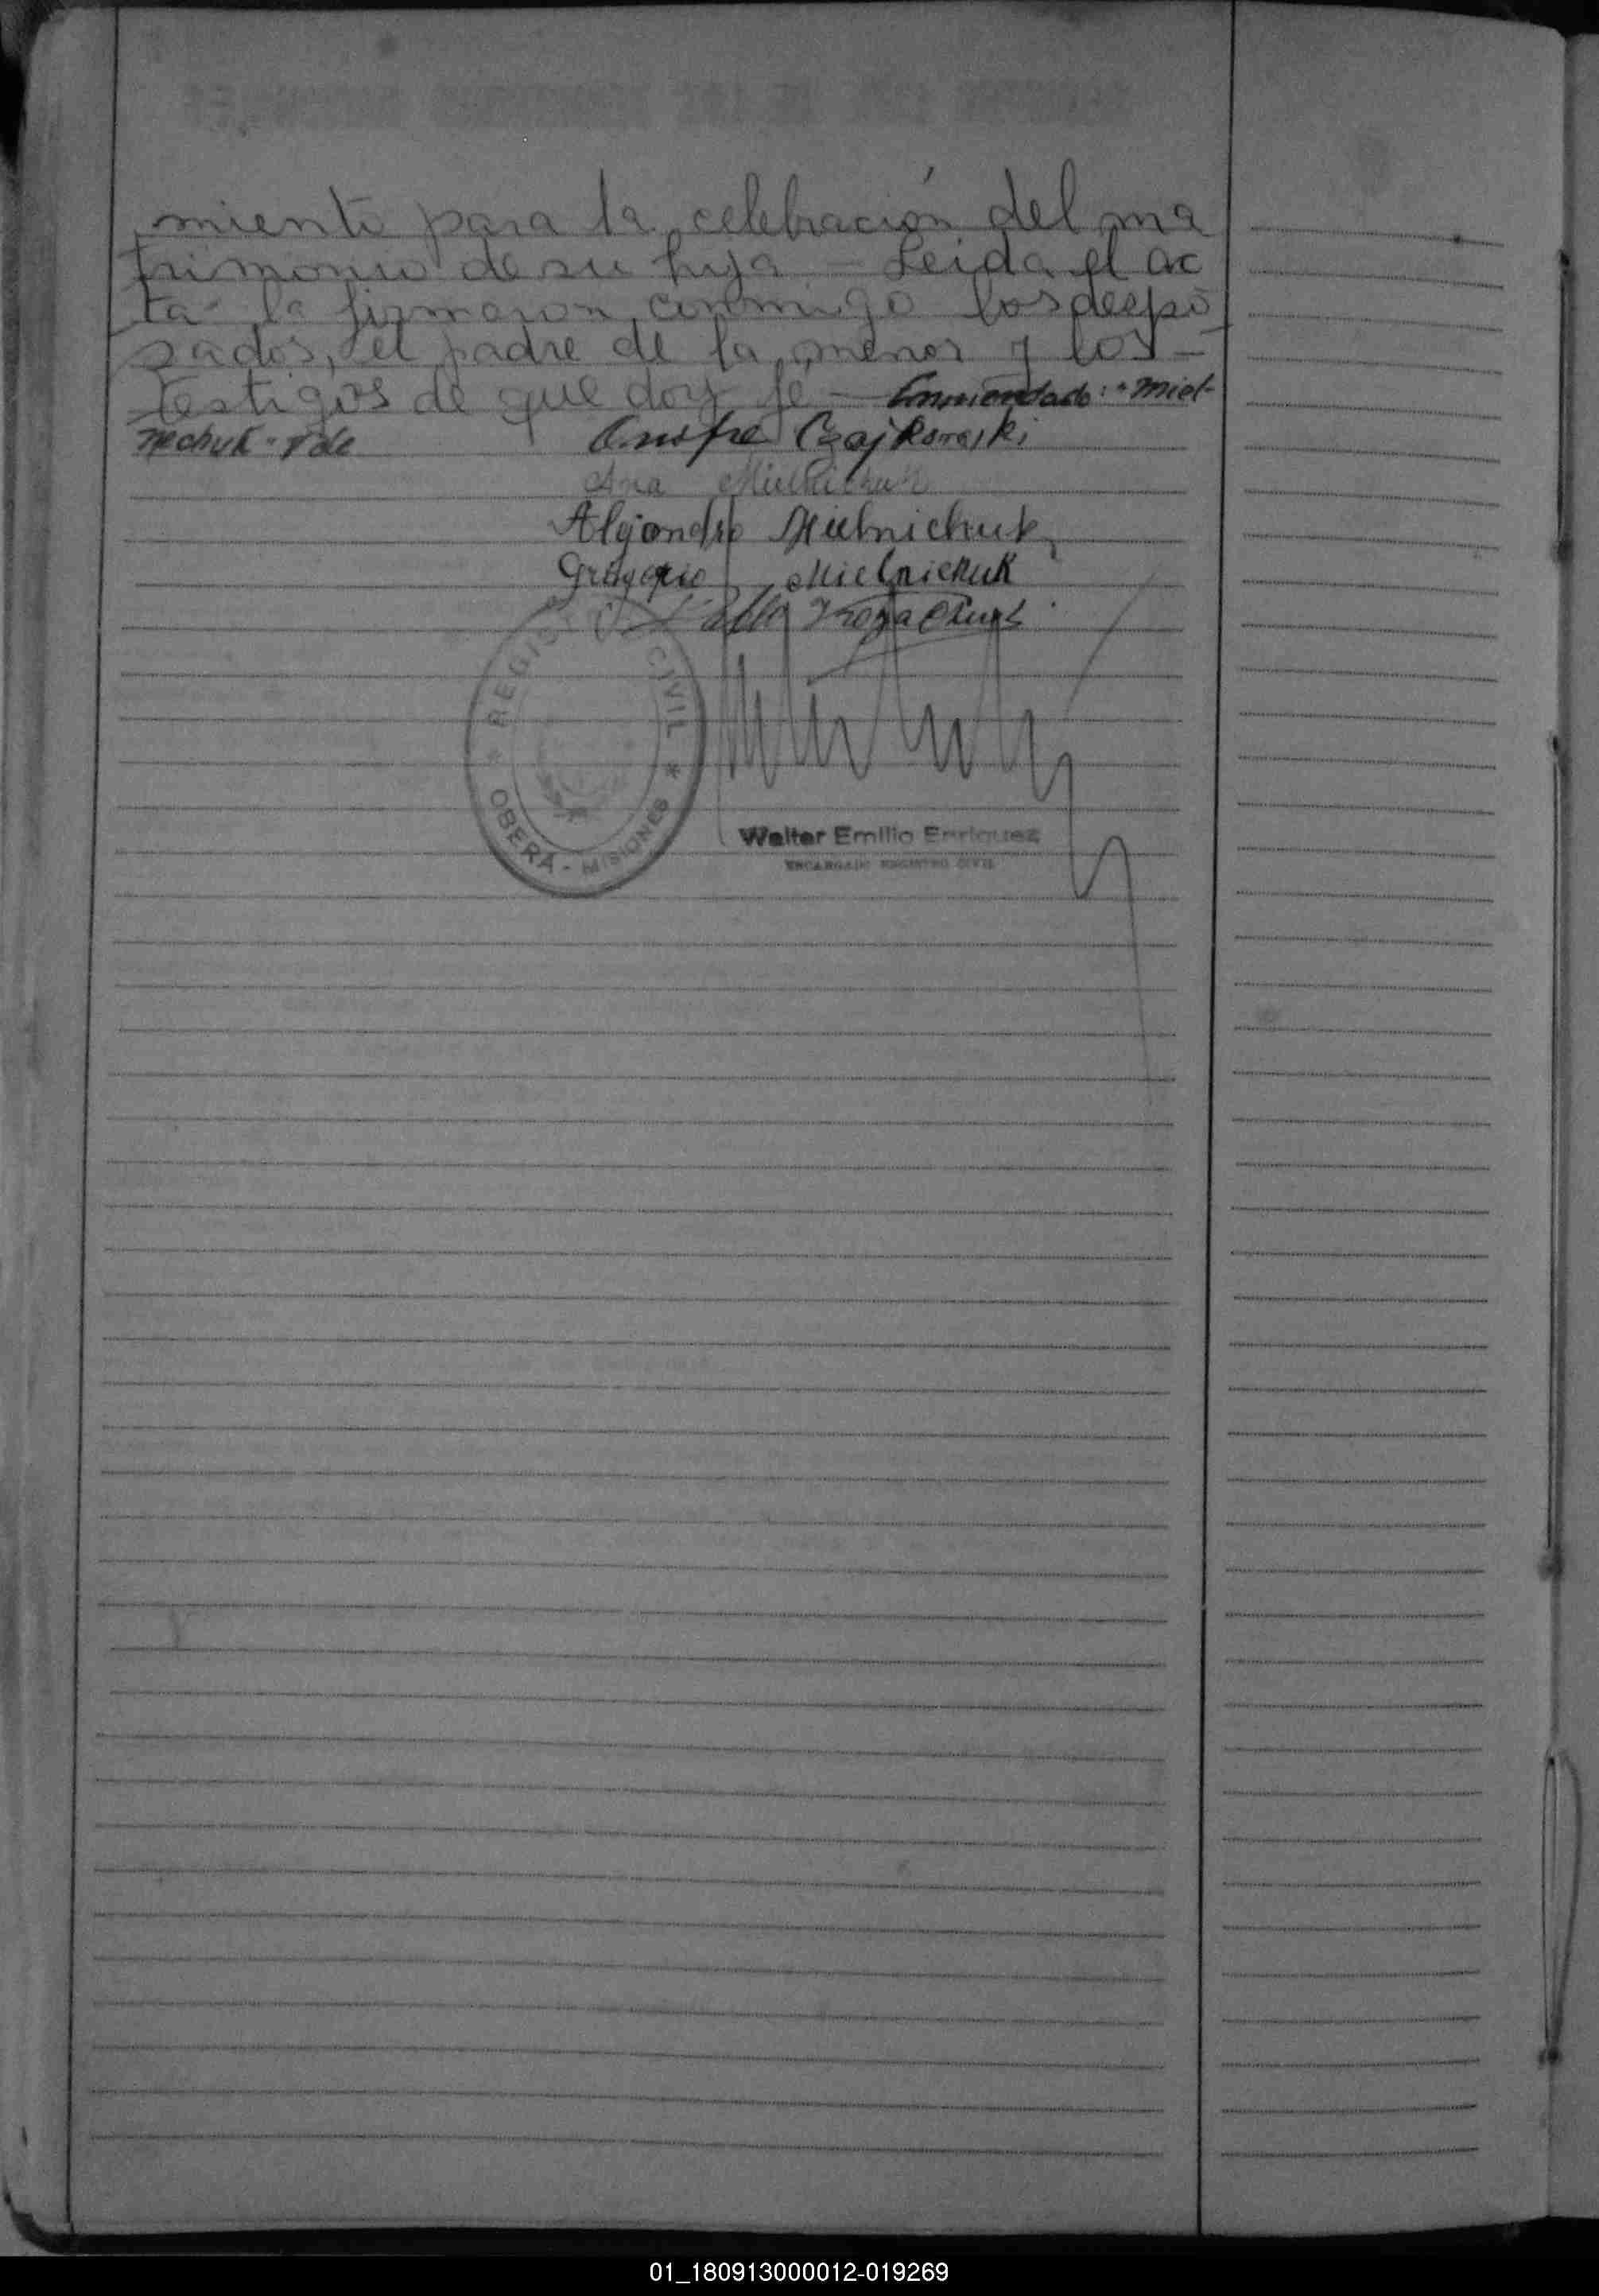 miento para la celebración del ma
trimonio de su hija - Leida el ac
ta la firmaron conmigo los despo
sados, el padre de la menor y los -
testigos de que doy fe - Enmendado: "Miel-
nechuk" Vale
Onofre Czajkowski
Ana Mielnichuk
Alejandro Mielnichuk
Gregorio Mielnichuk
REGISTRO CIVIL
* OBERA - MISIONES *
Walter Emilio Enriquez
ENCARGADO REGISTRO CIVIL
01_180913000012-019269